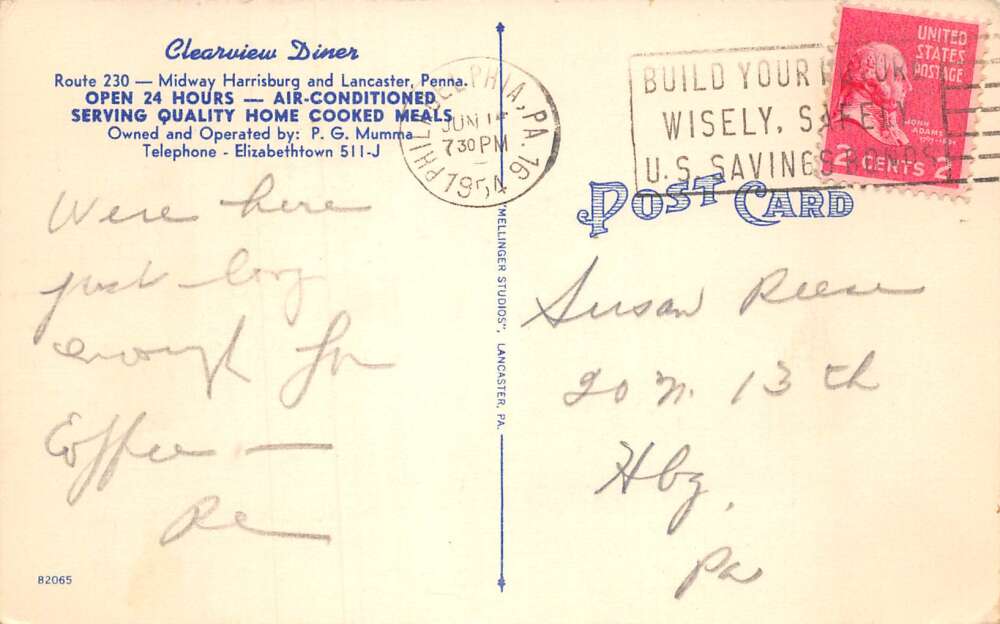 Clearview Diner
Route 230 — Midway Harrisburg and Lancaster, Penna.
OPEN 24 HOURS — AIR-CONDITIONED
SERVING QUALITY HOME COOKED MEALS
Owned and Operated by: P. G. Mumma
Telephone - Elizabethtown 511-J
PHILADELPHIA, PA. 16
JUN 14
730 PM
1954
BUILD YOUR FUTURE
WISELY, SAFELY
U.S. SAVINGS BONDS
UNITED
STATES
POSTAGE
JOHN
ADAMS
2 CENTS 2
POST CARD
Were here
just long
enough for
Coffee —
Re
"MELLINGER STUDIOS", LANCASTER, PA.
Susan Reese
20 N. 13th
Hbg,
Pa
82065